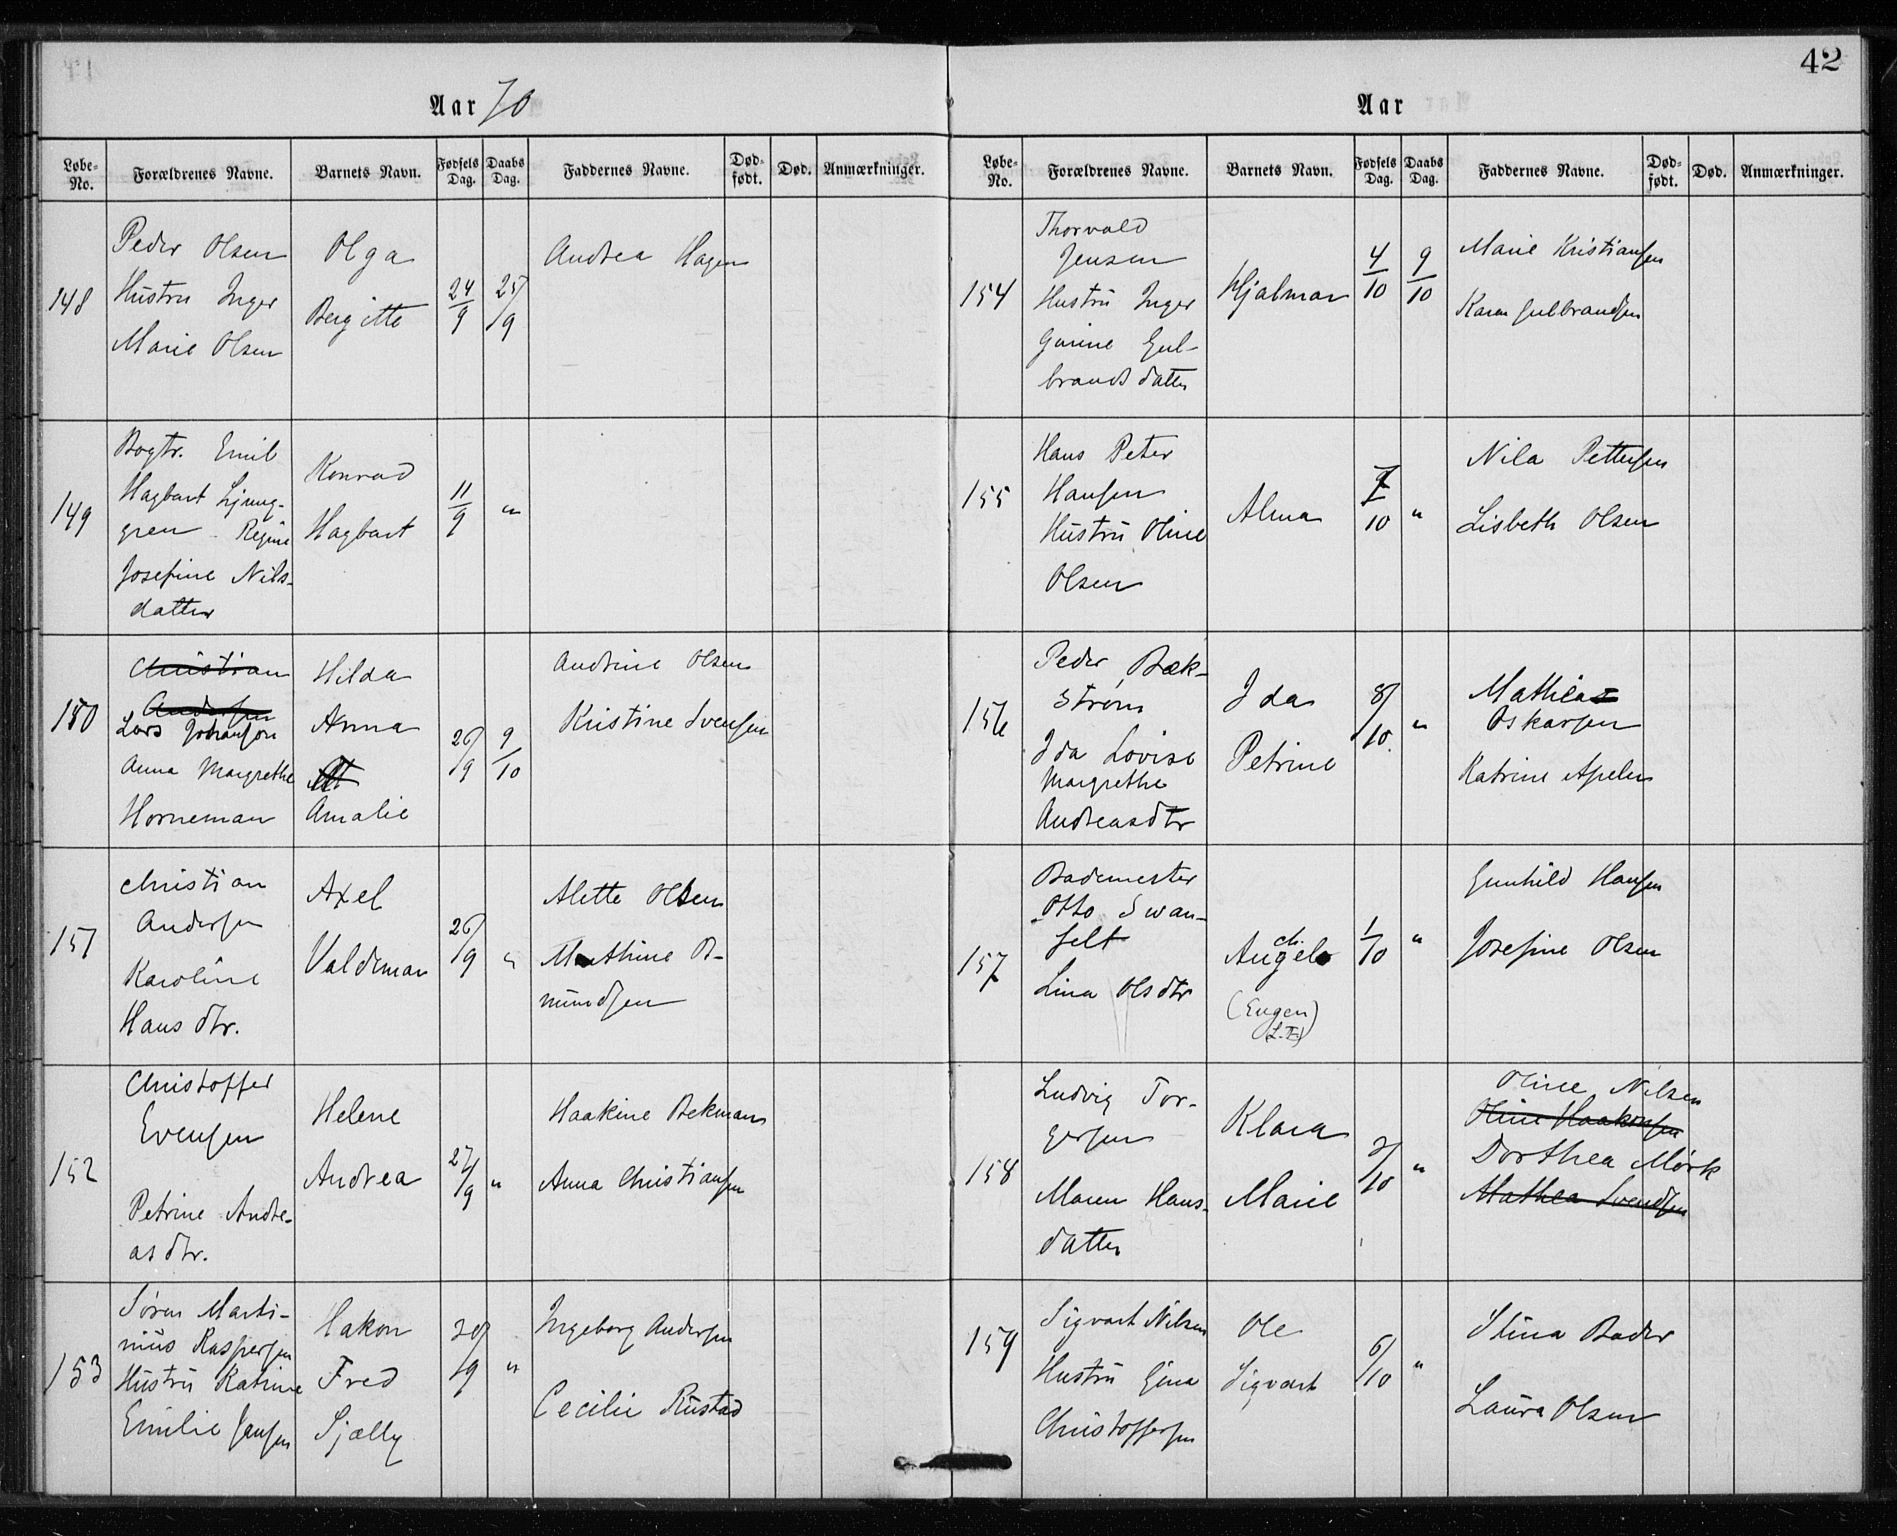 42
Aar 70
Løbe-No. Forældrenes Navne. Barnets Navn. Fødsels Dag. Daabs Dag. Faddernes Navne. Død-født. Død. Anmærkninger.
148
Peder Olsen
Hustru Inger
Marie Olsen
Olga
Bergitte
24/9
25/9
Andrea Hagen
149
Bogtr. Emil
Hagbart Ljung-
gren Regine
Josefine Nils-
datter
Konrad
Hagbart
11/9
"
150
Christian
Andersen
Lars Johanson
Anna Margrethe
Horneman
Hilda
Anna
Amalie
26/9
9/10
Andrine Olsen
Kristine Svensen
151
Christian
Andersen
Karoline
Hans dtr.
Axel
Valdemar
26/9
"
Alette Olsen
Mathine A-
mundsen
152
Christoffer
Evensen
Petrine Andre-
as dtr.
Helene
Andrea
27/9
"
Haakine Bekman
Anna Christiansen
153
Søren Marti-
nius Kaspersen
Hustru Katrine
Emilie Jensen
Hakon
Fred
Sjælly
20/9
"
Ingeborg Andersen
Cecilie Rustad
Aar
Løbe-No. Forældrenes Navne. Barnets Navn. Fødsels Dag. Daabs Dag. Faddernes Navne. Død-født. Død. Anmærkninger.
154
Thorvald
Jensen
Hustru Inger
Gurine Gul-
brands datter
Hjalmar
4/10
9/10
Marie Kristiansen
Karen Gulbrandsen
155
Hans Peter
Hansen
Hustru Oline
Olsen
Alma
7/10
"
Nila Pettersen
Lisbeth Olsen
156
Peder Bæk-
strøm
Ida Lovise
Margrethe
Andreasdtr
Ida
Petrine
8/10
"
Mathea
Oskarsen
Katrine Apelen
157
Bademester
Otto Swan-
felt
Lina Olsdtr
Angelo
(Eugen)
1/10
"
Gunhild Hansen
Josefine Olsen
158
Ludvig Tor-
gersen
Maren Hans-
datter
Klara
Marie
2/10
"
Oline Nilsen
Oline Haakonsen
Dorthea Mörk
Mathea Svendsen
159
Sigvart Nilsen
Hustru Gina
Christoffersen
Ole
Sigvart
6/10
"
Stina Bader
Laura Olsen